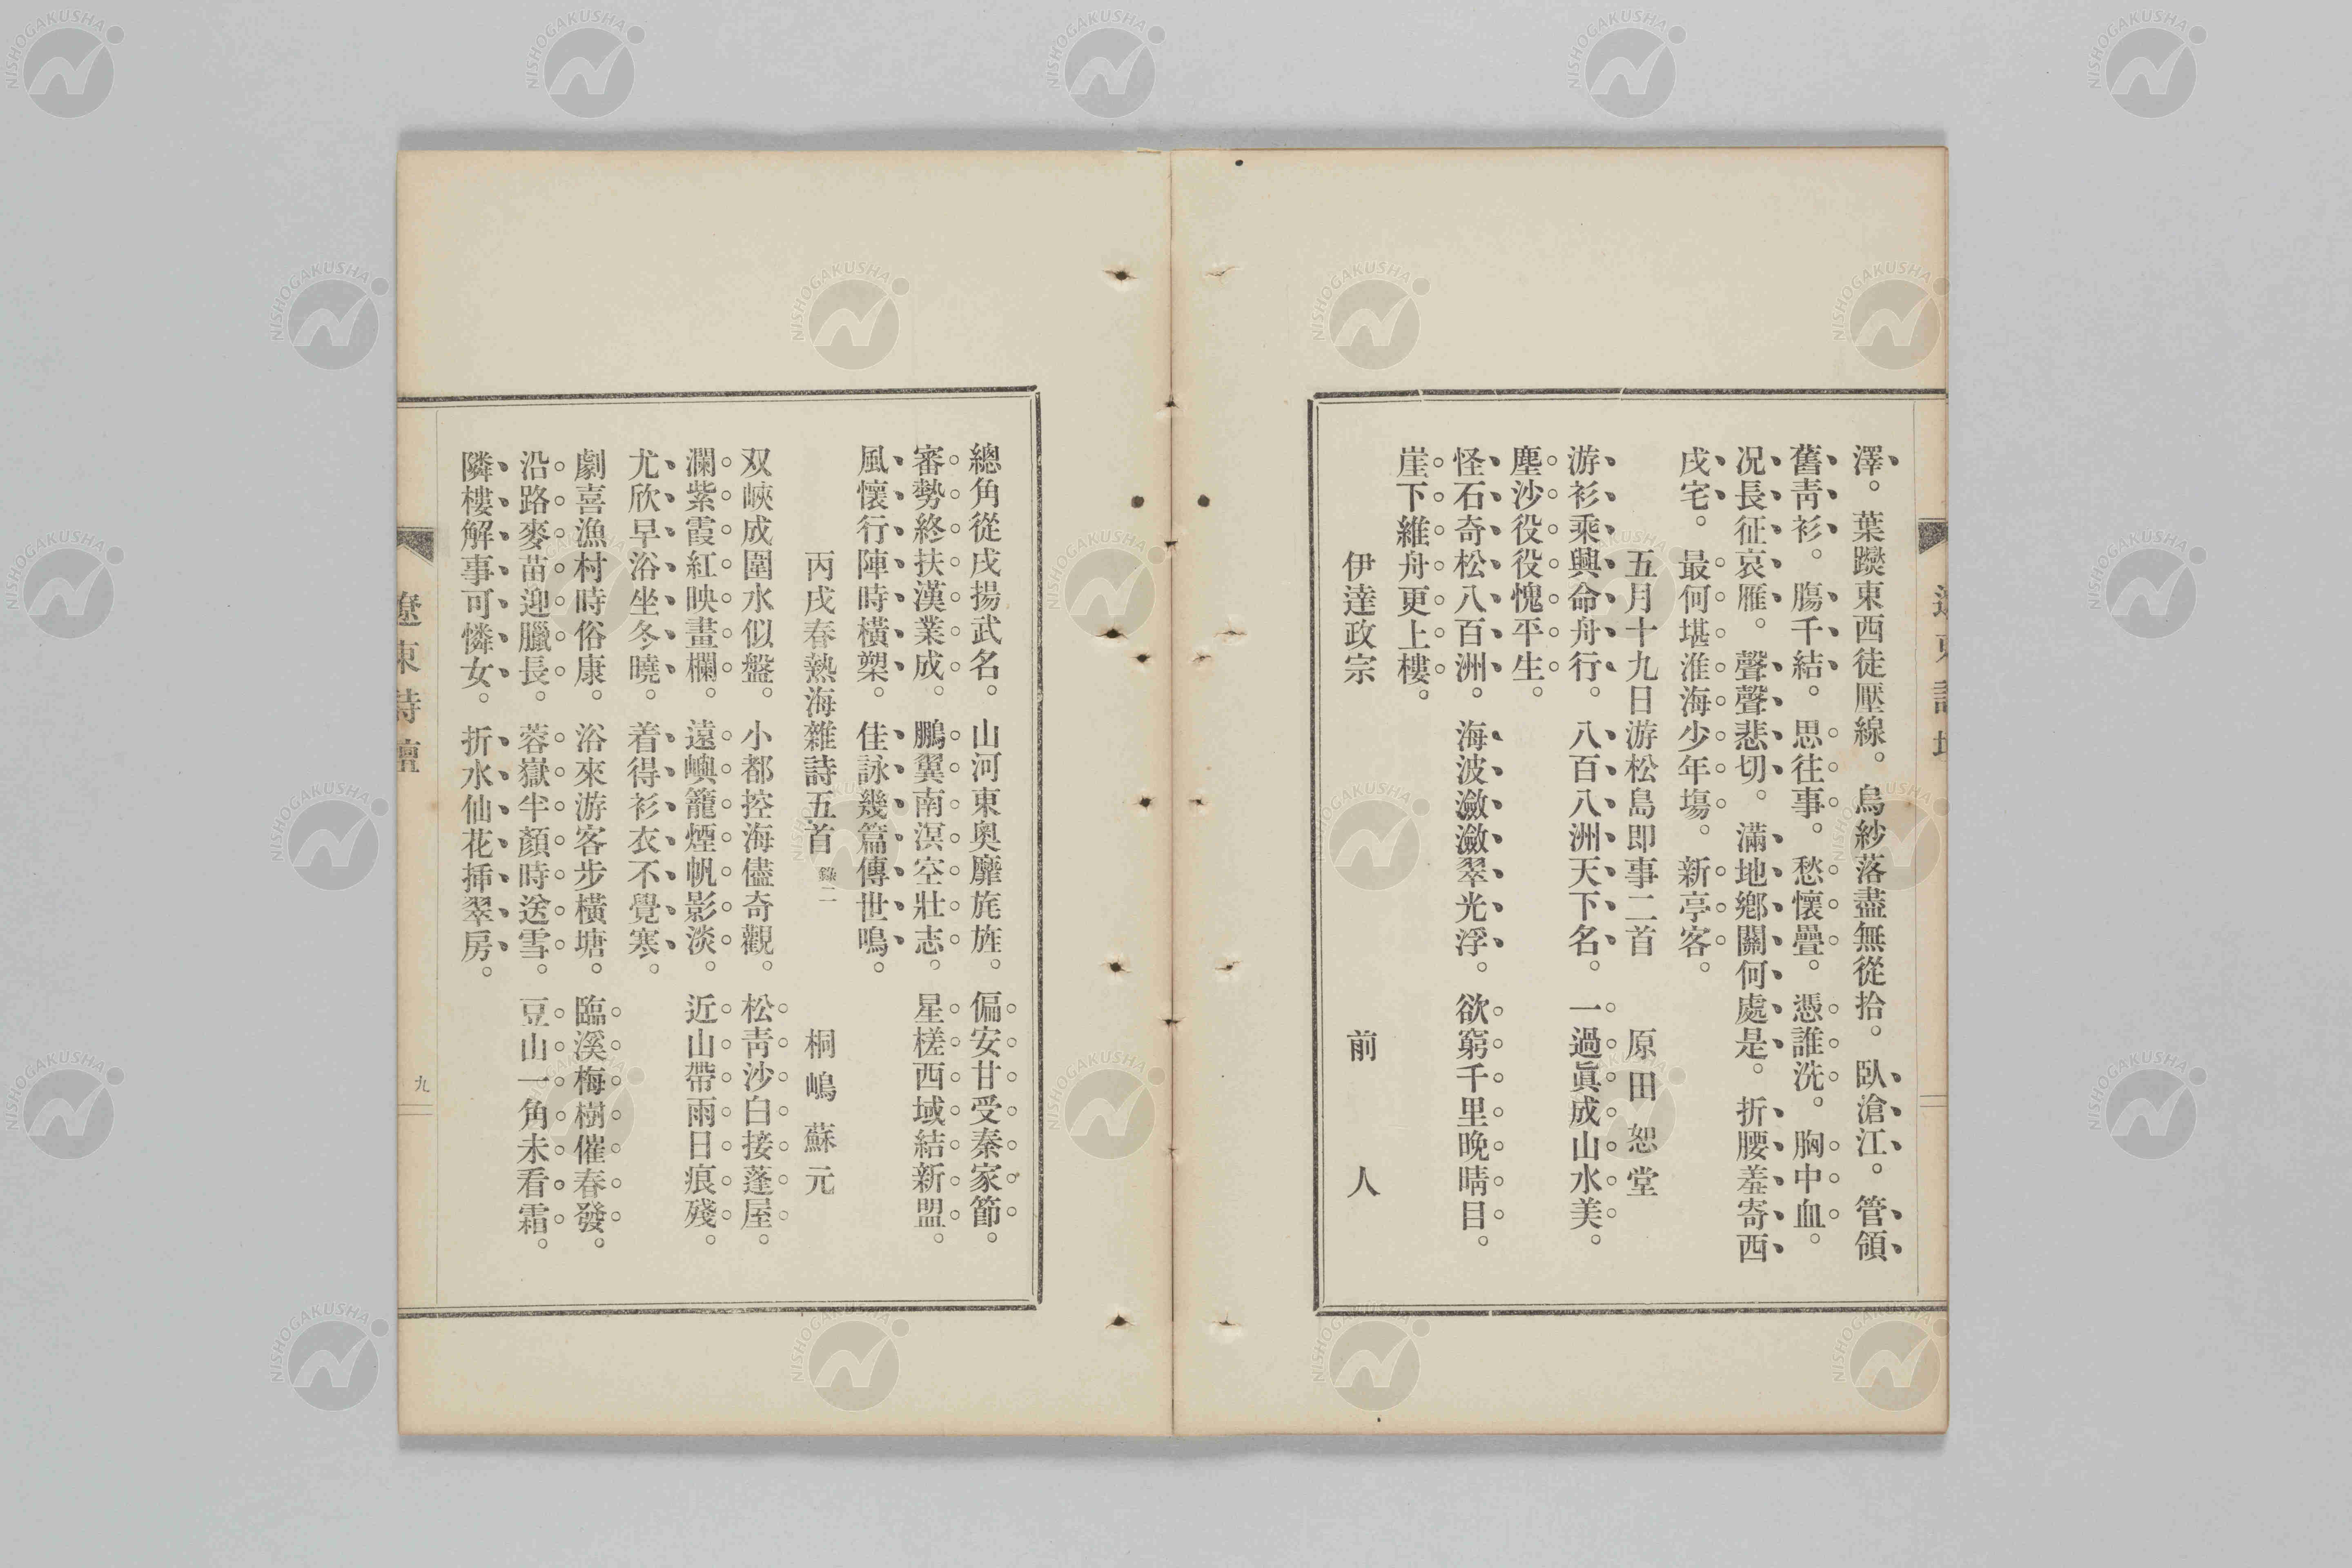 澤。葉躞東西徒壓線。烏紗落盡無從拾。臥滄江。管領
舊靑衫。腸千結。思往事。愁懷疊。憑誰洗。胸中血。
况長征哀雁。聲聲悲切。滿地鄕關何處是。折腰羞寄西
戌宅。最何堪淮海少年塲。新亭客。
五月十九日游松島即事二首 原田恕堂
游衫乘興命舟行。八百八洲天下名。一過眞成山水美。
塵沙役役愧平生。
怪石奇松八百洲。海波瀲瀲翠光浮。欲窮千里晩晴目。
崖下維舟更上樓。
伊達政宗 前人
總角從戌揚武名。山河東奧靡旄旌。偏安甘受秦家節。
審勢終扶漢業成。鵬翼南溟空壯志。星槎西域結新盟。
風懷行陣時橫槊。佳詠幾篇傳世鳴。
丙戌春熱海雜詩五首 錄二 桐嶋蘇元
双峽成圍水似盤。小都控海儘奇觀。松靑沙白接蓬屋。
瀾紫霞紅映畫欄。遠嶼籠煙帆影淡。近山帶雨日痕殘。
尤欣早浴坐冬曉。着得衫衣不覺寒。
劇喜漁村時俗康。浴來游客步橫塘。臨溪梅樹催春發。
沿路麥苗迎臘長。蓉嶽半顏時送雪。豆山一角未看霜。
隣樓解事可憐女。折水仙花揷翠房。
遼東詩壇
九
NISHOGAKUSHA